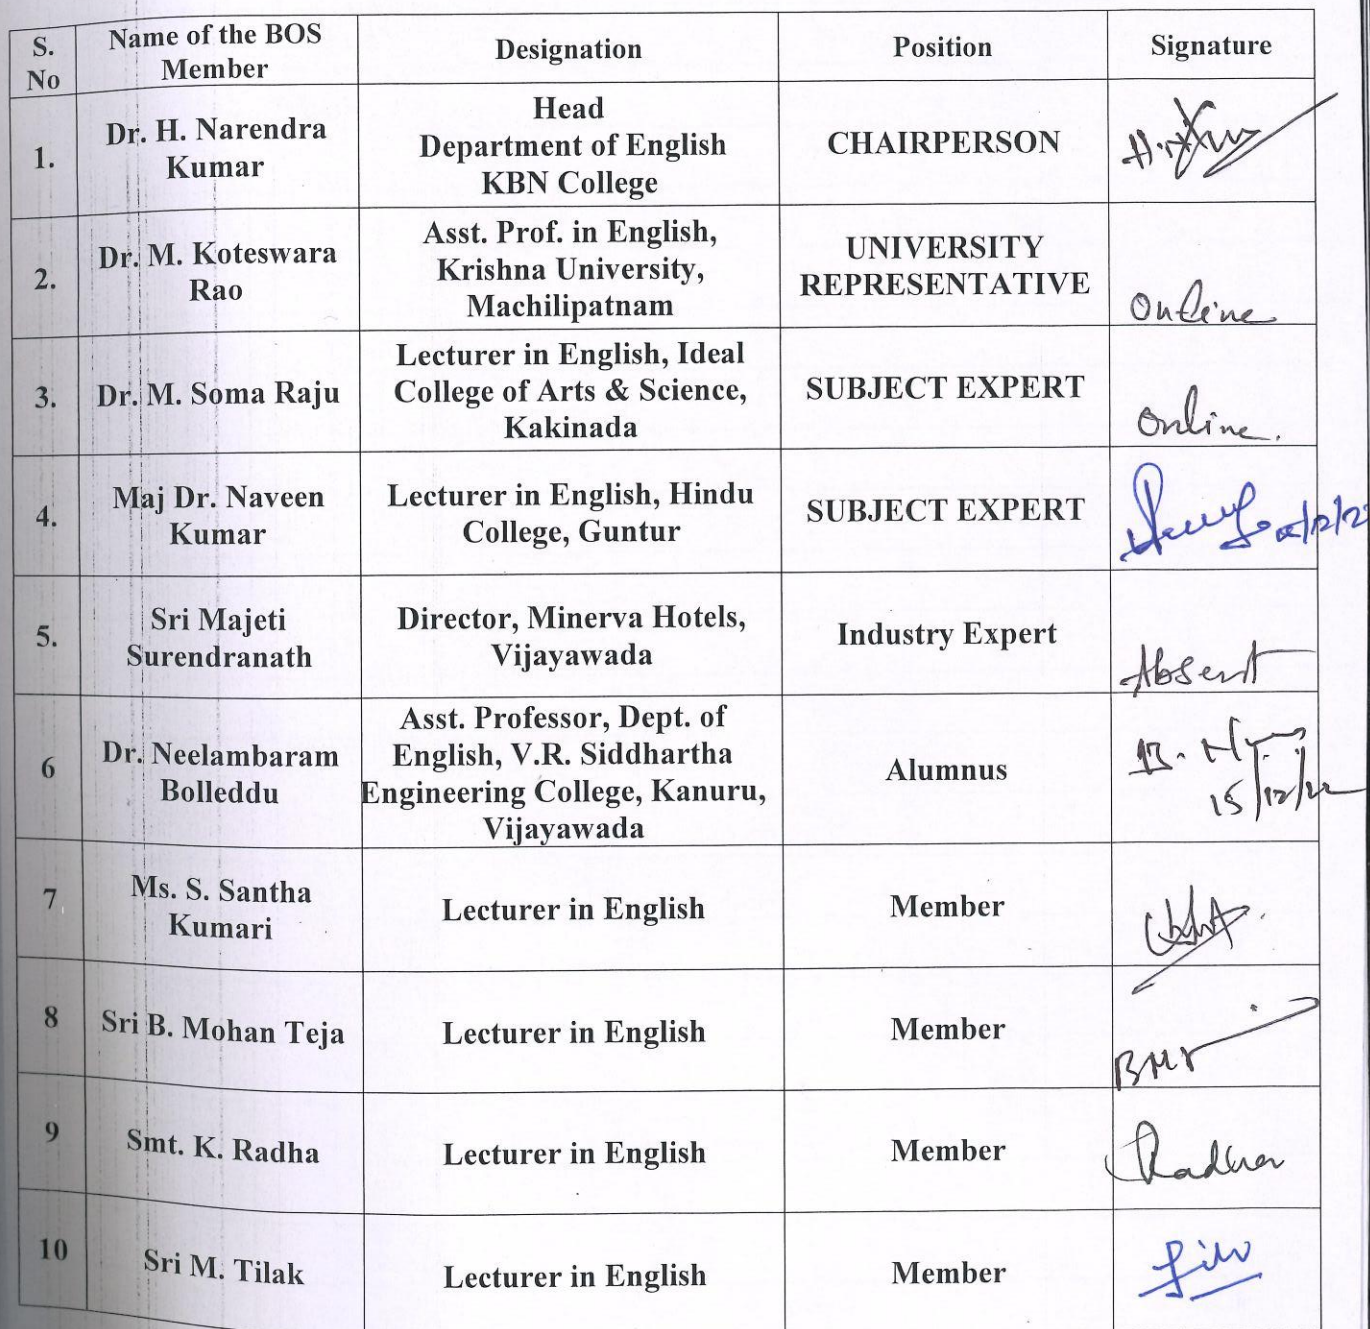 S. No
Name of the BOS
Member
Designation
Position
Signature
1.
Dr. H. Narendra
Kumar
Head
Department of English
KBN College
CHAIRPERSON
2.
Dr. M. Koteswara
Rao
Asst. Prof. in English,
Krishna University,
Machilipatnam
UNIVERSITY
REPRESENTATIVE
Online
3.
Dr. M. Soma Raju
Lecturer in English, Ideal
College of Arts & Science,
Kakinada
SUBJECT EXPERT
Online.
4.
Maj Dr. Naveen
Kumar
Lecturer in English, Hindu
College, Guntur
SUBJECT EXPERT
5.
Sri Majeti
Surendranath
Director, Minerva Hotels,
Vijayawada
Industry Expert
Absent
6
Dr. Neelambaram
Bolleddu
Asst. Professor, Dept. of
English, V.R. Siddhartha
Engineering College, Kanuru,
Vijayawada
Alumnus
15/12/22
7
Ms. S. Santha
Kumari
Lecturer in English
Member
8
Sri B. Mohan Teja
Lecturer in English
Member
BMT
9
Smt. K. Radha
Lecturer in English
Member
Radha
10
Sri M. Tilak
Lecturer in English
Member